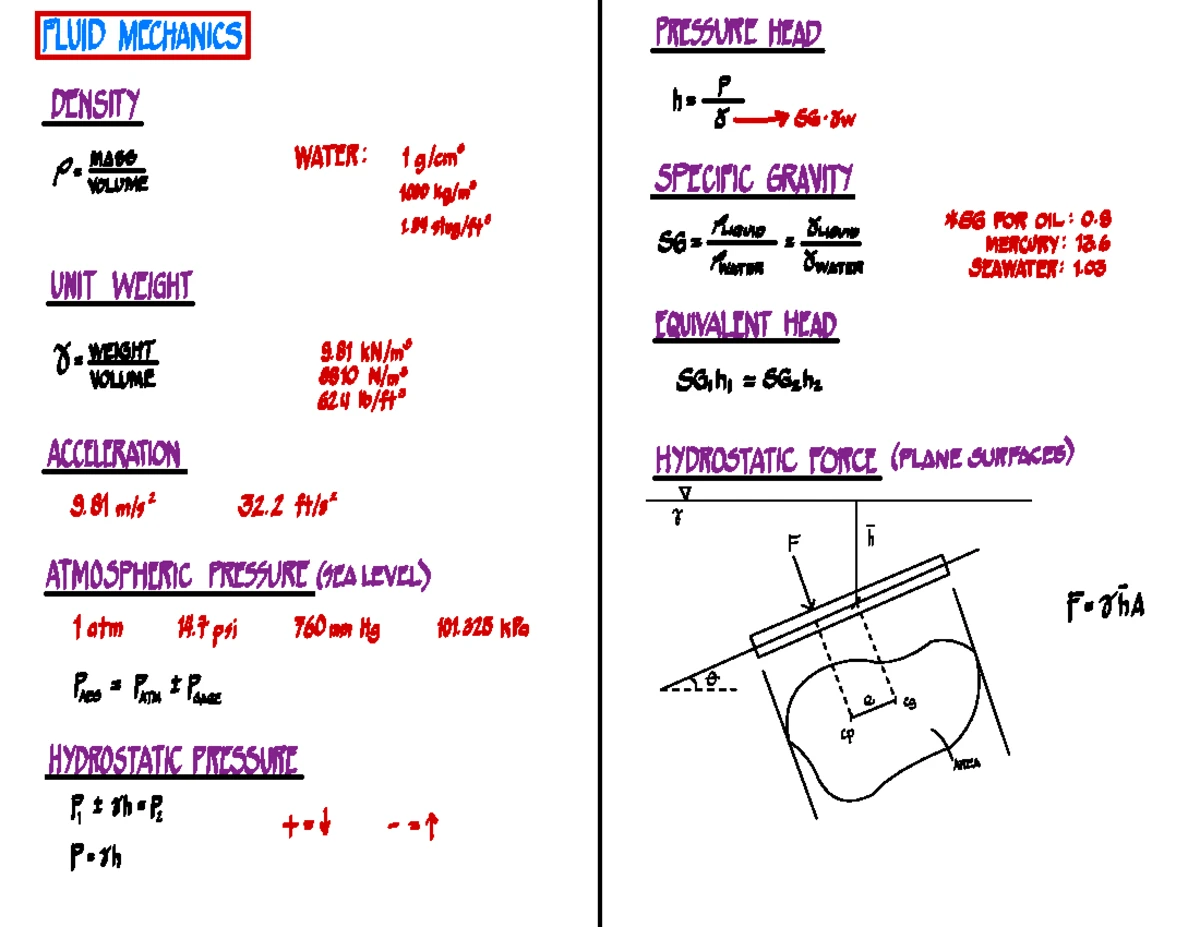 FLUID MECHANICS
DENSITY
ρ = MASS / VOLUME
WATER: 1 g/cm³
1000 kg/m³
1.94 slug/ft³
UNIT WEIGHT
γ = WEIGHT / VOLUME
9.81 kN/m³
9810 N/m³
62.4 lb/ft³
ACCELERATION
9.81 m/s² 32.2 ft/s²
ATMOSPHERIC PRESSURE (SEA LEVEL)
1 atm 14.7 psi 760 mm Hg 101.325 kPa
P_ABS = P_ATM ± P_GAGE
HYDROSTATIC PRESSURE
P₁ ± γh = P₂
+ = ↓ - = ↑
P = γh
PRESSURE HEAD
h = P / γ → SG·γw
SPECIFIC GRAVITY
SG = ρLIQUID / ρWATER = γLIQUID / γWATER
*SG FOR OIL: 0.8
MERCURY: 13.6
SEAWATER: 1.03
EQUIVALENT HEAD
SG₁h₁ = SG₂h₂
HYDROSTATIC FORCE (PLANE SURFACES)
γ
h̄
F
F = γh̄A
θ
e
cg
cp
AREA